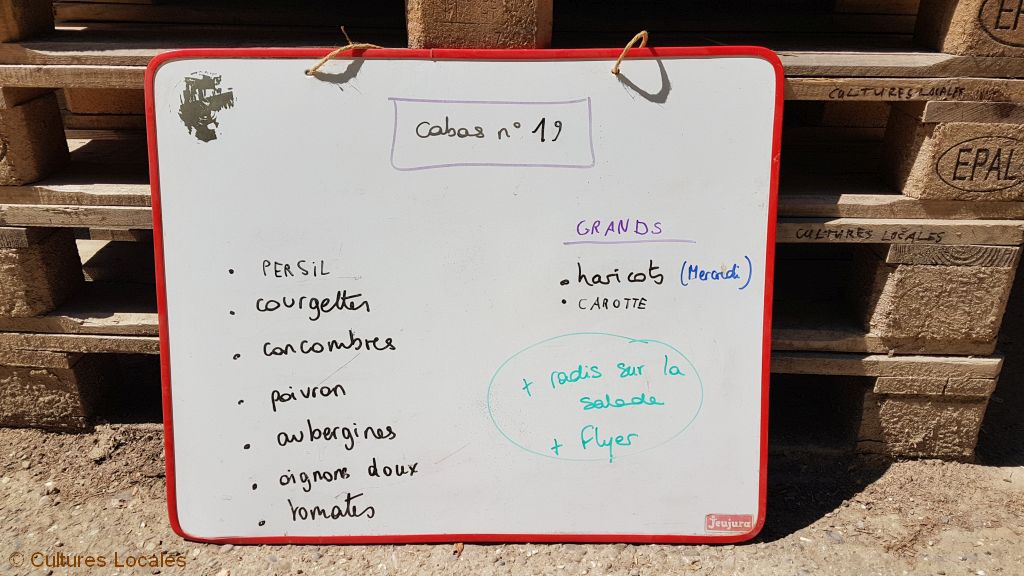 Cabas n° 19
PERSIL
courgettes
concombres
poivron
aubergines
oignons doux
tomates
GRANDS
haricots (Mercredi)
CAROTTE
+ radis sur la
salade
+ Flyer
Jeujura
CULTURES LOCALES
EPAL
CULTURES LOCALES
© Cultures Locales